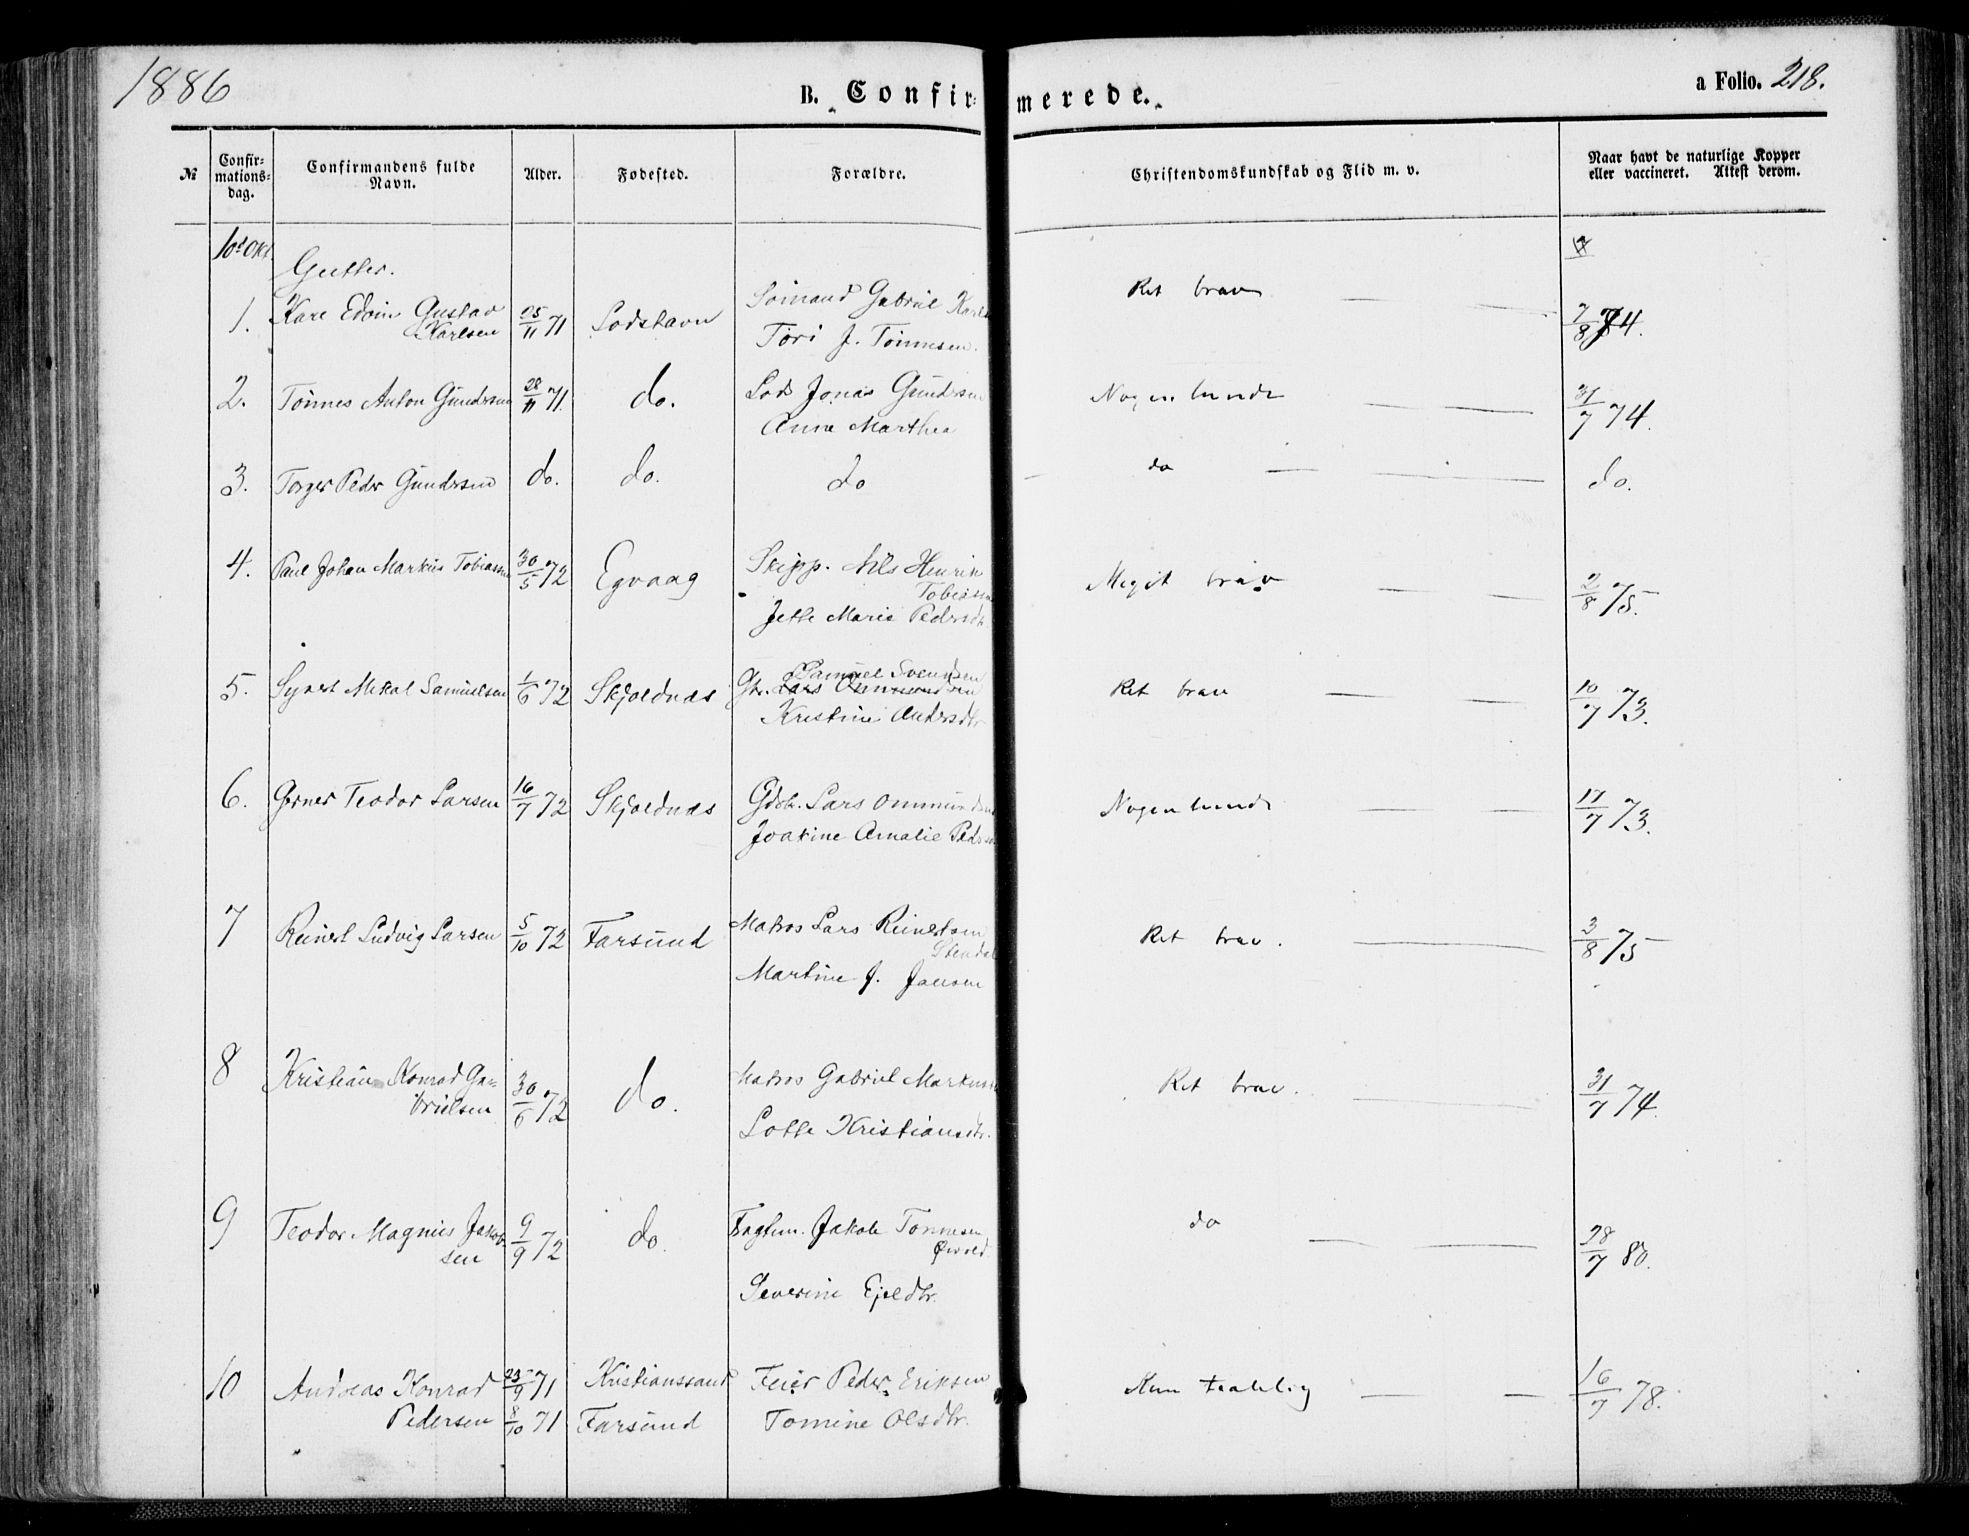 1886
B. Confir-
merede.
a Folio. 218.
№
Confir-
mations-
dag.
Confirmandens fulde
Navn.
Alder.
Fødested.
Forældre.
Christendomskundskab og Flid m. v.
Naar havt de naturlige Kopper
eller vaccineret. Attest derom.
10d Okt
Gutter.
1. Kare Edvin Gustav 25/11 71 Lodshavn Sömand Gabriel Ret brav 7/8 74.
Karlsen Tori J. Tönnesen.
2. Tönnes Anton Gundersen 28/11 71. do. Lods Jonas Gundersen Nogenlunde 31/7 74.
Anne Marthea
3. Torger Peder Gundersen do. do. do do do.
4. Paul Johan Markus Tobiassen 30/5 72 Egvaag Skipp. Nils Henrik Meget brav 2/8 75.
Tobiassen
Jette Marie Pedersdtr.
5. Syvert Mikal Samuelsen 1/6 72 Skjoldnæs Samuel Svendsen Ret brav 10/7 73.
Gbr. Lars Ommundsen
Kristine Andersdtr.
6. Gerner Teodor Larsen 16/7 72 Skjoldnæs Gdbr. Lars Ommundsen Nogenlunde 17/7 73.
Joakine Amalie
7 Reinert Ludvig Larsen 5/10 72 Farsund Matros Lars Reinertsen Ret brav. 3/8 75
Martine J. Jansen
8 Kristian Konrad Ga- 30/6 72 do. Matros Gabriel Markussen Ret brav. 31/7 74.
brielsen Lotte Kristiansdtr.
9 Teodor Magnus Jakob- 9/9 72 do. Jakob Tönnesen do 28/7 80.
sen
Severine Ejeldtr.
10 Andreas Konrad 23/9 71 Kristianssand Feier Peder Eriksen Kun taalelig 16/7 78.
Pedersen 8/10 71 Farsund Tomine Olsdtr.